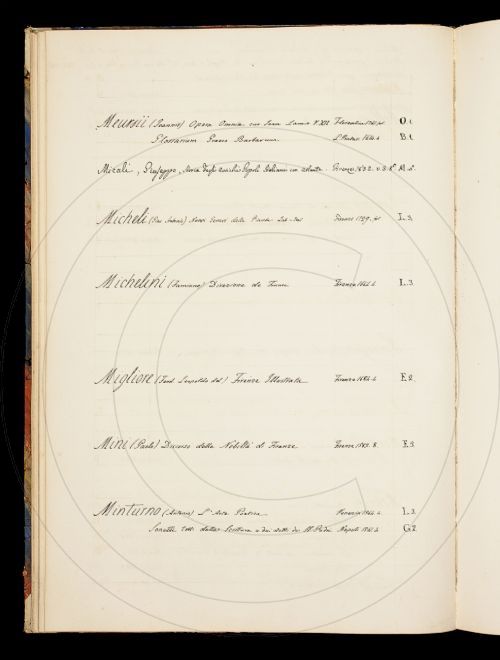 Meursii (Joannis) Opera Omnia cur Joan Lamio V. XII Florentiae 1741. f. O. 1.
Glossarium Graeco Barbarum L. Batav. 1614. 4. B. 1.
Micali, Giuseppe, Storia degli antichi Popoli Italiani con atlante. Firenze, 1832. v. 3. 8°
Micheli (Pier Antonio) Nova Genera Firenze 1729. f. L. 3.
Michelini (Famiano) Direzione de Fiumi Firenze 1664. 4. L. 3.
Migliore (Ferd. Leopoldo del) Firenze Illustrata Firenze 1684. 4. E. 2.
Mini (Paolo) Discorso della Nobiltà di Firenze Firenze 1593. 8. E. 3.
Minturno (Antonio) L'Arte Poetica Venezia 1564. 4. L. 3.
Sonetti tolti dalla Scrittura e dai detti de SS. Padri Napoli 1561. 8. G. 2.